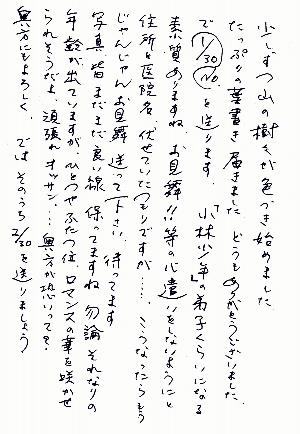 少しずつ山の樹々が色づき始めました
たっぷりの葉書き届きました どうもありがとうございました
で 1/30 No. を送ります。「小林少年」の弟子くらいになる
素質ありますね お見舞!!等の心遣いをしないようにと
住所と医院名 伏せていたつもりですが…… こうなったらもう
じゃんじゃんお見舞送って下さい 待ってます
写真 皆まだまだ良い線 保ってますね 勿論それなりの
年齢が出ていますが、ひとつやふたつ位、ロマンスの華を咲かせ
られそうだよ、頑張れオッサン… 奥方が恐いって?
奥方にもよろしく、 では そのうち 2/30 を送りましょう